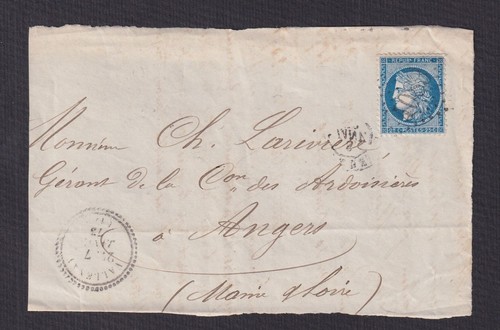 REPUB FRANC
25 C POSTES 25 C
Monsieur Ch. Larivière
Gérant de la Con des Ardoisières
à Angers
(Maine & Loire)